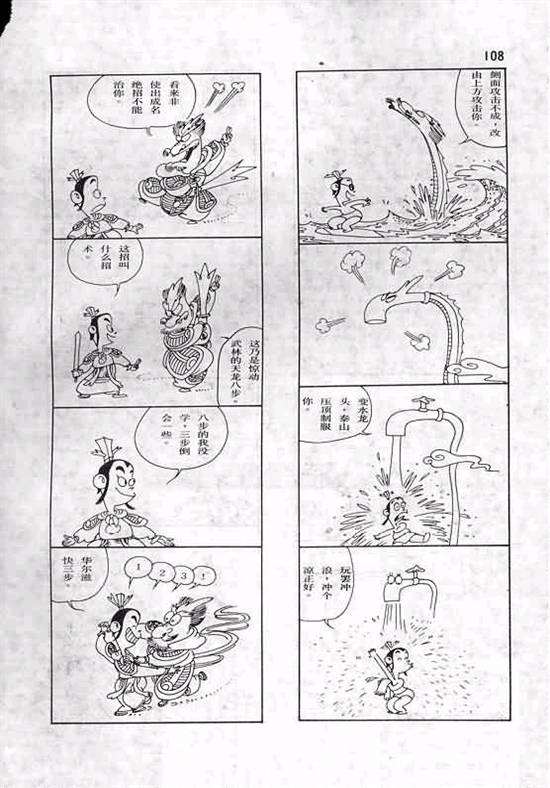 108
侧面攻击不成，改
由上方攻击你。
变水龙
头，泰山
压顶制服
你。
玩罢冲
浪，冲个
凉正好。
看来非
使出成名
绝招不能
治你。
这招叫
什么招
术。
这乃是惊动
武林的天龙八步。
八步的我没
学，三步倒
会一些。
1 2 3!
华尔滋
快三步。